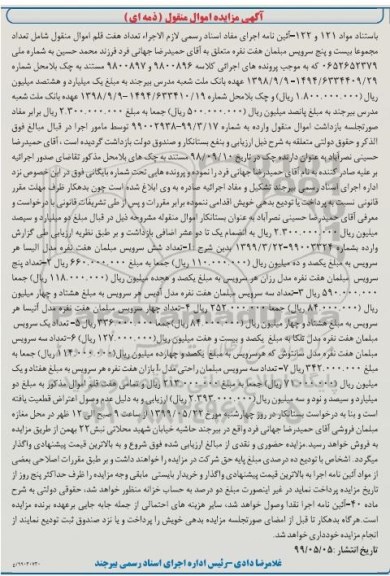 آگهی مزایده اموال منقول (ذمه ای)
باستناد مواد ۱۲۱ و ۱۲۲-آئین نامه اجرای مفاد اسناد رسمی لازم الاجراء تعداد هفت قلم اموال منقول شامل تعداد
مجموعا بیست و پنج سرویس مبلمان هفت نفره متعلق به آقای حمیدرضا جهانی فرد فرزند محمد حسین به شماره ملی
۰۶۵۲۶۵۲۳۷۹ که به موجب پرونده های اجرائی کلاسه ۹۸۰۰۸۹۶ و ۹۸۰۰۸۹۷ مستند به چک بلامحل شماره
۱۴۹۴/۶۳۳۴۰۹/۲۹-۱۳۹۸/۹/۹ عهده بانک ملت شعبه مدرس بیرجند به مبلغ یک میلیارد و هشتصد میلیون
ریال (۱.۸۰۰.۰۰۰.۰۰۰ ریال) و چک بلامحل شماره ۱۴۹۴/۶۳۳۴۱۰/۱۹-۱۳۹۸/۹/۹ عهده بانک ملت شعبه
مدرس بیرجند به مبلغ پانصد میلیون ریال (۵۰۰.۰۰۰.۰۰۰ ریال) جمعا به مبلغ ۲.۳۰۰.۰۰۰.۰۰۰ ریال برابر مفاد
صورتجلسه بازداشت اموال منقول وارده به شماره ۹۹۰۰۲۹۳۸-۹۹/۳/۱۷ توسط مامور اجرا در قبال مبالغ فوق
الذکر و حقوق دولتی متعلقه به شرح ذیل ارزیابی و بنفع بستانکار و صندوق دولت بازداشت گردیده است ، آقای حمیدرضا
حسینی نصرآباد به عنوان دارنده چک در تاریخ ۹۸/۰۹/۱۰ مستند به چک های بلامحل مذکور تقاضای صدور اجرائیه
بر علیه صادر کننده به نام آقای حمیدرضا جهانی فرد را نموده و پرونده هایی تحت شماره بایگانی فوق در این خصوص نزد
اداره اجرای اسناد رسمی بیرجند تشکیل و مفاد اجرائیه صادره به وی ابلاغ شده است چون بدهکار ظرف مهلت مقرر
قانونی نسبت به پرداخت یا تودیع بدهی خویش اقدامی ننموده برابر مقررات و پس از طی تشریفات قانونی با درخواست و
معرفی آقای حمیدرضا حسینی نصرآباد به عنوان بستانکار اموال منقوله مشروحه ذیل در قبال مبلغ دو میلیارد و سیصد
میلیون ریال ۲.۳۰۰.۰۰۰.۰۰۰ ریال به انضمام یک تا دو عشر اضافی بازداشت و بر طبق نظریه ارزیابی طی گزارش
وارده بشماره ۹۹۰۰۳۳۲۴-۱۳۹۹/۳/۲۲ بدین شرح ۱-تعداد شش سرویس مبلمان هفت نفره مدل السا هر
سرویس به مبلغ یکصد و ده میلیون ریال (۱۱۰.۰۰۰.۰۰۰ ریال) جمعا به مبلغ ۶۶۰.۰۰۰.۰۰۰ ریال ۲-تعداد پنج
سرویس مبلمان هفت نفره مدل رزان هر سرویس به مبلغ یکصد و هجده میلیون ریال (۱۱۸.۰۰۰.۰۰۰ ریال) جمعا
۵۹۰.۰۰۰.۰۰۰ ریال ۳-تعداد سه سرویس مبلمان هفت نفره مدل آدیس هر سرویس به مبلغ هشتاد و چهار میلیون
ریال (۸۴.۰۰۰.۰۰۰ ریال) جمعا ۲۵۲.۰۰۰.۰۰۰ ریال ۴-تعداد چهار سرویس مبلمان هفت نفره مدل آتیسا هر
سرویس به مبلغ هشتاد و چهار میلیون ریال (۸۴.۰۰۰.۰۰۰ ریال) جمعا ۳۳۶.۰۰۰.۰۰۰ ریال ۵-تعداد یک سرویس
مبلمان هفت نفره مدل تانگا به مبلغ یکصد و بیست و هفت میلیون ریال (۱۲۷.۰۰۰.۰۰۰ ریال) ۶-تعداد سه سرویس
مبلمان هفت نفره مدل سانتوش که هر سرویس به مبلغ یکصد و چهارده میلیون ریال (۱۱۴.۰۰۰.۰۰۰ ریال) جمعا به
مبلغ ۳۴۲.۰۰۰.۰۰۰ ریال ۷-تعداد سه سرویس مبلمان راحتی مدل آبازان هفت نفره هر سرویس به مبلغ هفتاد و یک
میلیون ریال (۷۱.۰۰۰.۰۰۰ ریال) جمعا به مبلغ ۲۱۳.۰۰۰.۰۰۰ ریال و تمامی هفت قلم اموال مذکور به مبلغ دو
میلیارد و سیصد و نود و سه میلیون ریال (۲.۳۹۳.۰۰۰.۰۰۰ ریال) ارزیابی و به دلیل عدم وصول اعتراض قطعیت یافته
است و بنا به درخواست بستانکار در روز چهارشنبه مورخ ۱۳۹۹/۰۵/۲۲ از ساعت ۹ صبح الی ۱۲ ظهر در محل مغازه
مبلمان فروشی آقای حمیدرضا جهانی فرد واقع در بیرجند حاشیه خیابان شهید محلاتی نبش ۲۲ بهمن از طریق مزایده
به فروش خواهد رسید مزایده حضوری و نقدی از مبالغ ارزیابی شده فوق شروع و به بالاترین قیمت پیشنهادی واگذار
میگردد. اشخاص با تودیع ده درصدی مبلغ پایه حق شرکت در مزایده را خواهند داشت و بر طبق مقررات اصلاحی بعضی
از مواد آئین نامه اجرا به بالاترین قیمت پیشنهادی واگذار و خریدار بایستی مابقی وجه مزایده را ظرف حداکثر پنج روز از
تاریخ مزایده پرداخت نماید در غیر اینصورت مبلغ دو درصد به حساب خزانه منظور خواهد شد، حقوقی دولتی به شرح
ماده ۴۰-آئین نامه اجرا نقدا وصول خواهد شد، سایر هزینه های احتمالی از جمله جابه جایی برعهده برنده مزایده
است. هرگاه بدهکار تا قبل از امضای صورتجلسه مزایده بدهی خویش را پرداخت و یا نزد صندوق ثبت تودیع نمایند از
انجام مزایده خودداری خواهد شد.
تاریخ انتشار :۹۹/۰۵/۰۵
غلامرضا دادی -رئیس اداره اجرای اسناد رسمی بیرجند